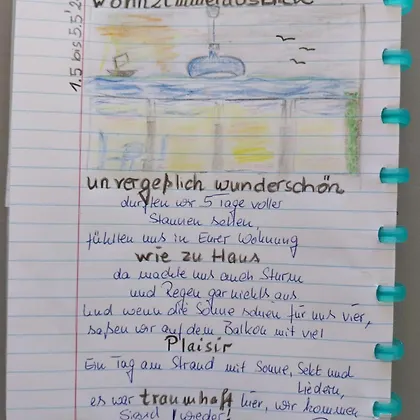 1.5 bis 5.5.'2
Wohnzimmerausblick
unvergeßlich wunderschön
durften wir 5 Tage voller
Staunen sehen,
fühlten uns in Eurer Wohnung
wie zu Haus
da machte uns auch Sturm
und Regen gar nichts aus
Und wenn die Sonne schien für uns vier,
saßen wir auf dem Balkon mit viel
Plaisir
Ein Tag am Strand mit Sonne, Sekt und
Liedern,
es war traumhaft hier, wir kommen
wieder!